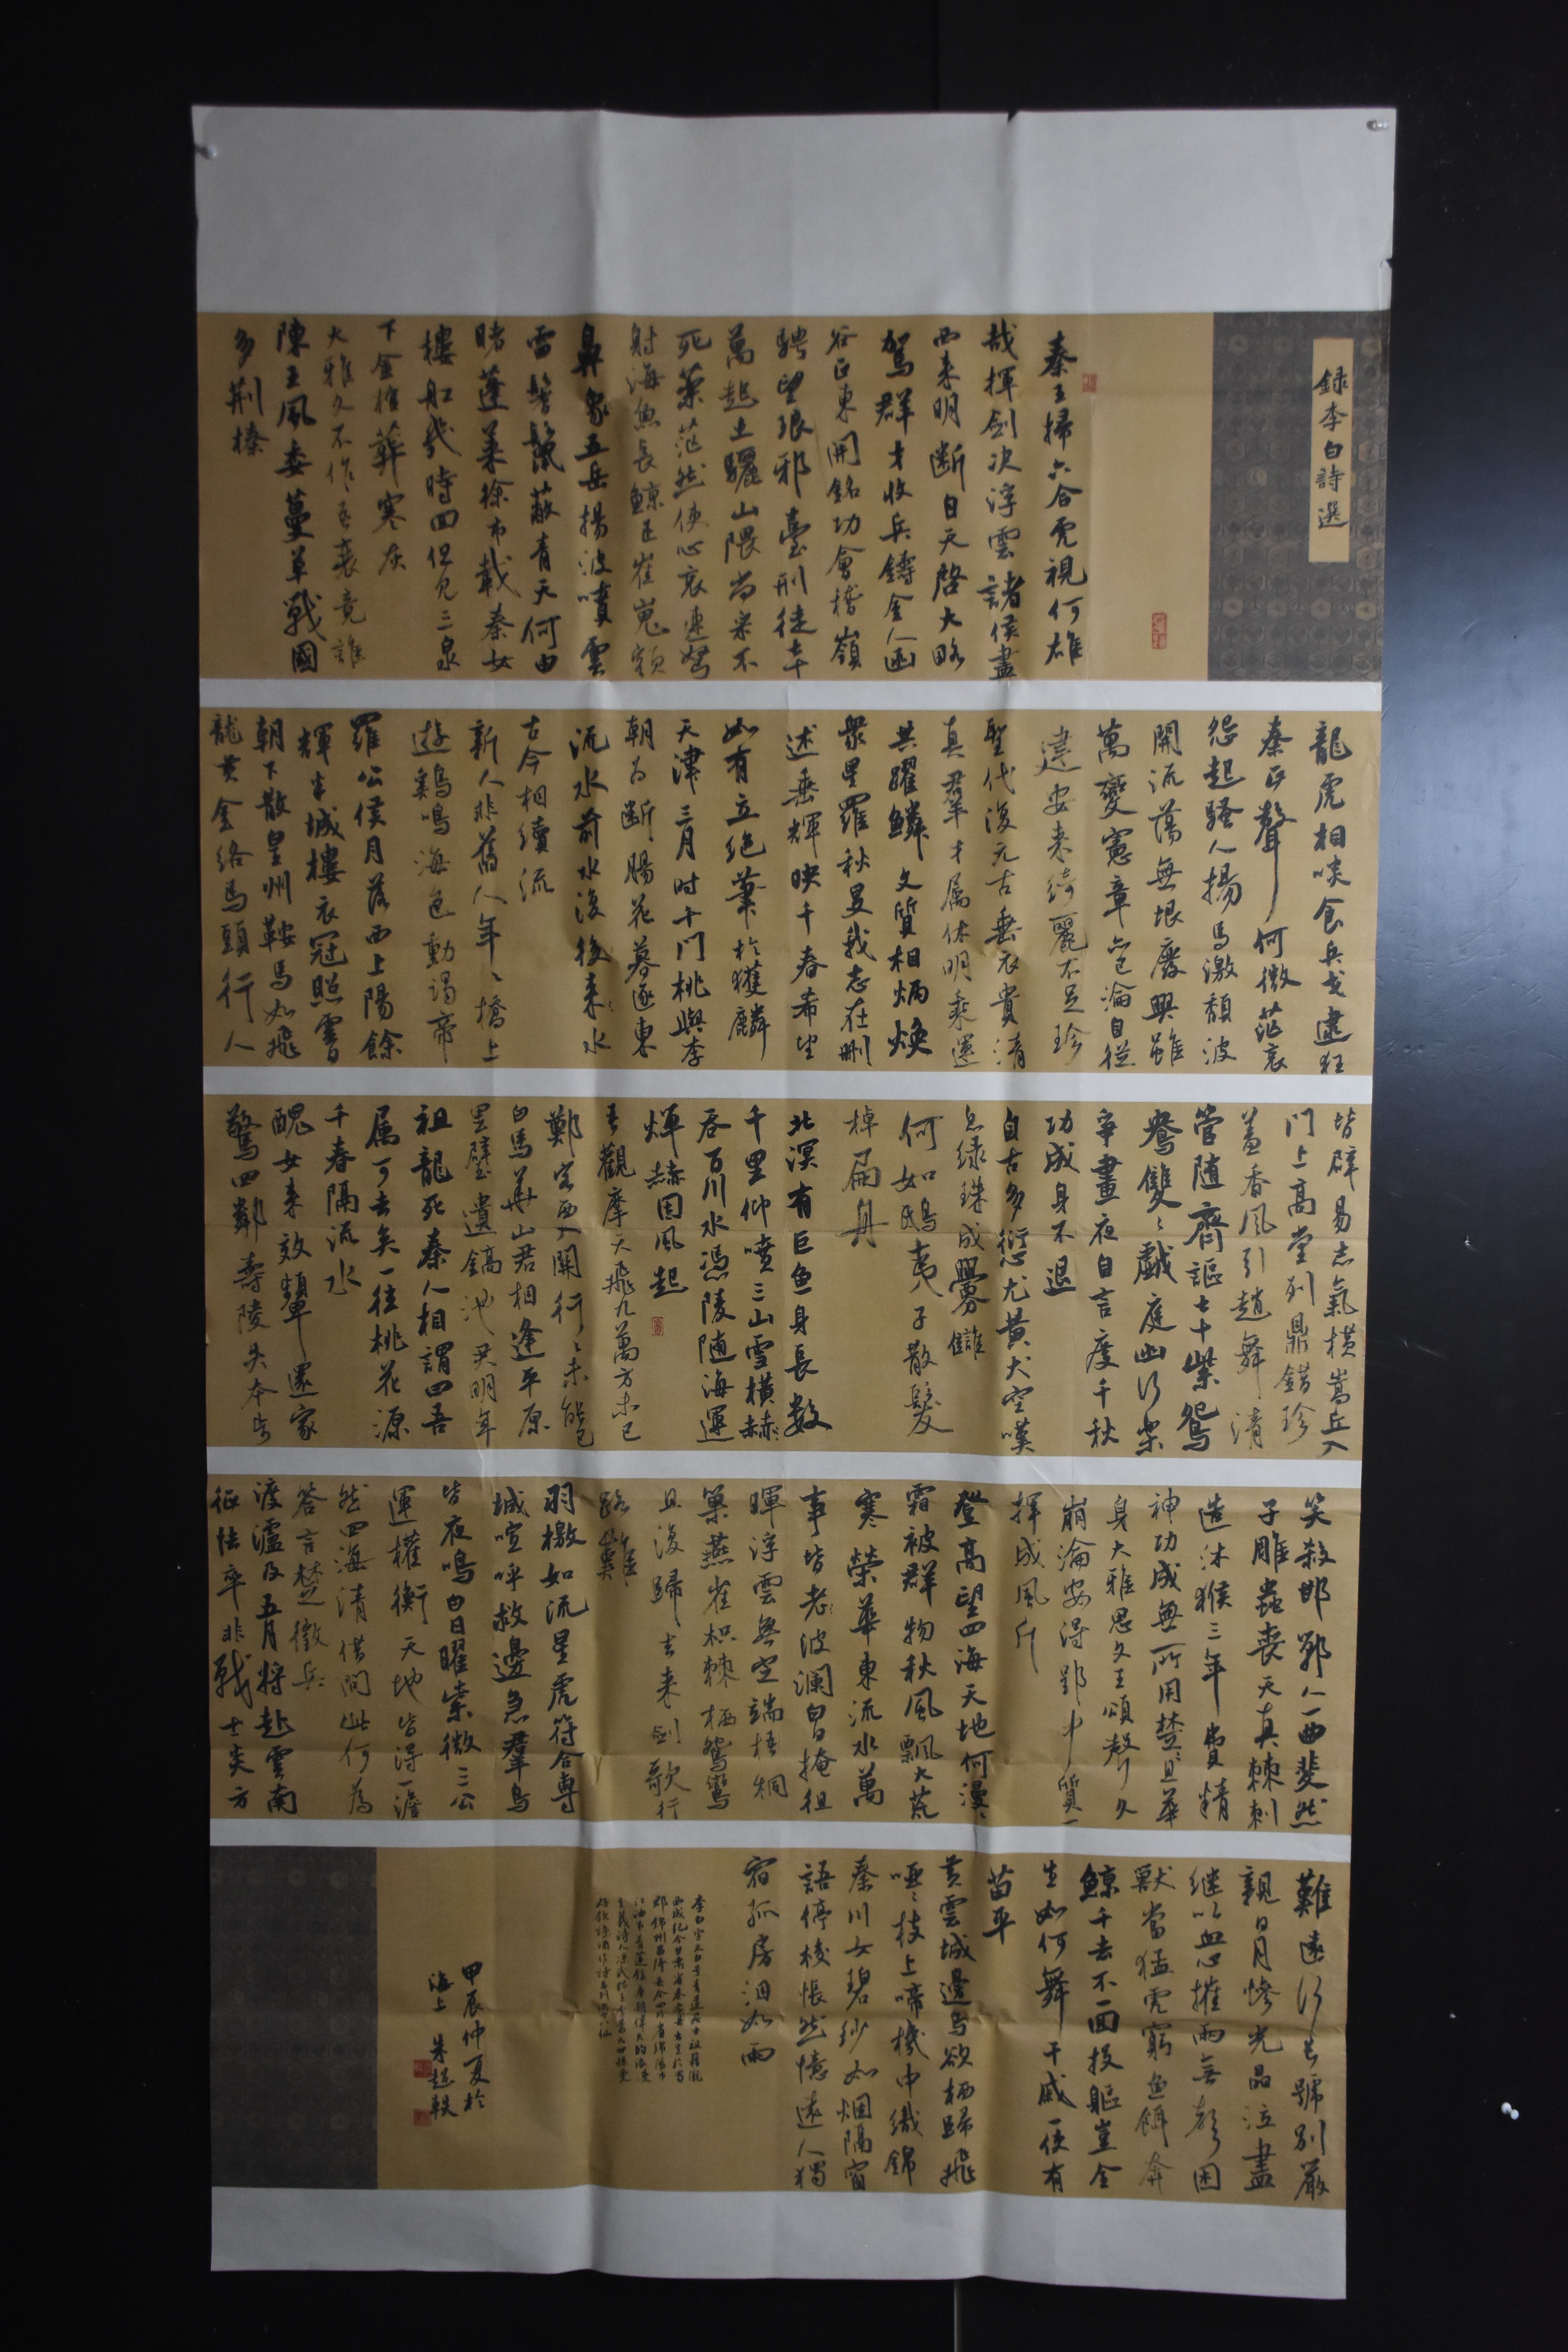 録李白詩選
秦王掃六合虎視何雄
哉揮劍决浮雲諸侯盡
西来明断自天啓大略
駕群才收兵鑄金人函
谷正東開銘功會稽嶺
騁望琅邪臺刑徒七十
萬起土驪山隈尚采不
死藥茫然使心哀連弩
射海魚長鯨正崔嵬額
鼻象五岳揚波噴雲
雷鬐鬣蔽青天何由
睹蓬莱徐市載秦女
樓船幾時回但見三泉
下金棺葬寒灰
大雅久不作吾衰竟誰
陳王風委蔓草戰國
多荆榛
龍虎相啖食兵戈逮狂
秦正聲何微茫哀
怨起騷人揚馬激頹波
開流蕩無垠廢興雖
萬變憲章亦已淪自從
建安来綺麗不足珍
聖代復元古垂衣貴清
真羣才属休明乘運
共躍鱗文質相炳焕
衆星羅秋旻我志在删
述垂輝映千春希聖
如有立絶筆於獲麟
天津三月时千門桃與李
朝為断腸花暮逐東
流水前水復後来水
古今相續流
新人非舊人年ミ橋上
遊鷄鳴海色動謁帝
羅公侯月落西上陽餘
輝半城樓衣冠照雲日
朝下散皇州鞍馬如飛
龍黄金络馬頭行人
皆辟易志氣横嵩丘入
門上高堂列鼎錯珍
羞香風引趙舞清
管随齊謳七十紫鴛
鴦雙ミ戲庭幽行樂
爭晝夜自言度千秋
功成身不退
自古多愆尤黄犬空嘆
息緑珠成舋讎
何如鴟夷子散髮
棹扁舟
北溟有巨鱼身長数
千里仰喷三山雪横
吞百川水憑陵随海運
燀赫因風起
吾觀摩天飛九萬方未已
鄭客西入關行ミ未能已
白馬華山君相逢平原
里璧遺鎬池君明年
祖龍死秦人相謂曰吾
属可去矣一往桃花源
千春隔流水
醜女来效顰還家
驚四鄰壽陵失本步
笑殺邯鄲人一曲斐然
子雕蟲喪天真棘刺
造沐猴三年費精
神功成無所用楚ミ且華
身大雅思文王頌聲久
崩淪安得郢中質一
揮成風斤
登高望四海天地何漫ミ
霜被群物秋風飄大荒
寒榮華東流水萬
事皆波瀾白日掩徂
暉浮雲無定端梧桐
巢燕雀枳棘栖鴛鸞
且復歸去来劍歌行
路難
羽檄如流星虎符合專
城喧呼救邊急羣鳥
皆夜鳴白日曜紫微三公
運權衡天地皆得一澹
然四海清借問此何為
答言楚徵兵
渡瀘及五月將赴雲南
征怯卒非戰士炎方
難遠行長號别嚴
親日月惨光晶泣盡
继以血心摧兩無聲困
獸當猛虎窮魚餌奔
鯨千去不一回投軀豈全
生如何舞干戚一使有
苗平
黄雲城邊烏欲栖歸飛
啞ミ枝上啼機中織錦
秦川女碧纱如烟隔窗
語停梭悵然憶遠人獨
宿孤房泪如雨
甲辰仲夏於
海上